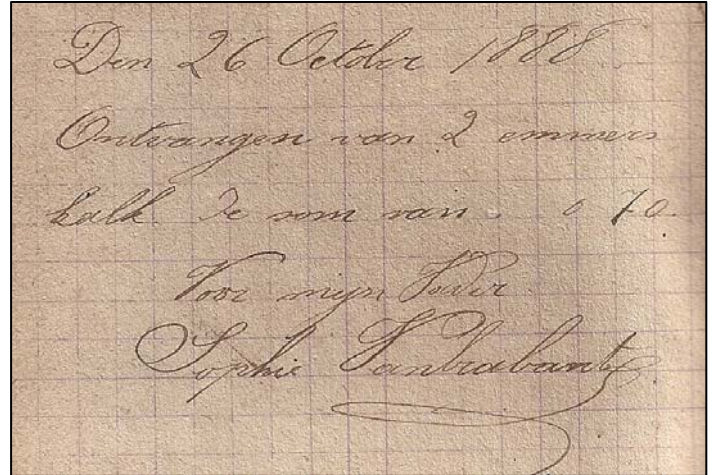 Den 26 October 1888
Ontvangen van 2 emmers
kalk de som van . 0 70.
Voor mijn Vader
Sophie Vanbrabant